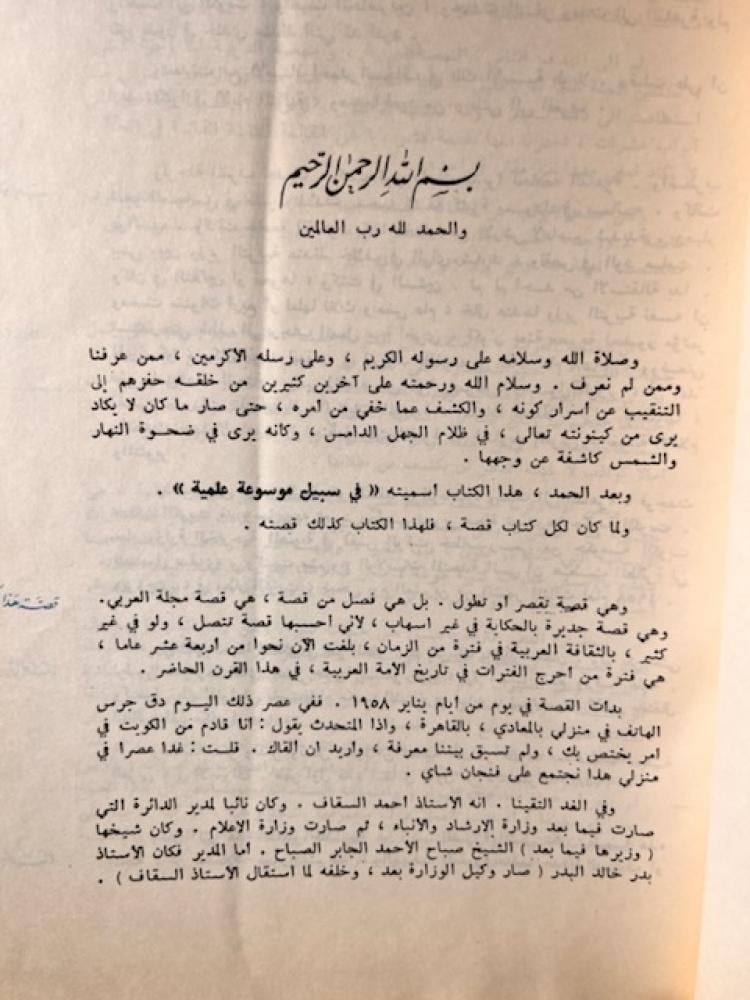 بسم الله الرحمن الرحيم
والحمد لله رب العالمين
وصلاة الله وسلامه على رسوله الكريم ، وعلى رسله الأكرمين ، ممن عرفنا
وممن لم نعرف . وسلام الله ورحمته على آخرين كثيرين من خلقه حفزهم إلى
التنقيب عن أسرار كونه ، والكشف عما خفي من أمره ، حتى صار ما كان لا يكاد
يرى من كينونته تعالى ، في ظلام الجهل الدامس ، وكأنه يرى في ضحوة النهار
والشمس كاشفة عن وجهها .
وبعد الحمد ، هذا الكتاب أسميته « في سبيل موسوعة علمية » .
ولما كان لكل كتاب قصة ، فلهذا الكتاب كذلك قصته .
قصة هذا
وهي قصة تقصر أو تطول . بل هي فصل من قصة ، هي قصة مجلة العربي.
وهي قصة جديرة بالحكاية في غير اسهاب ، لأني أحسبها قصة تتصل ، ولو في غير
كثير ، بالثقافة العربية في فترة من الزمان ، بلغت الآن نحوا من أربعة عشر عاما ،
هي فترة من أحرج الفترات في تاريخ الأمة العربية ، في هذا القرن الحاضر .
بدات القصة في يوم من أيام يناير ١٩٥٨ . ففي عصر ذلك اليوم دق جرس
الهاتف في منزلي بالمعادي ، بالقاهرة ، واذا المتحدث يقول : أنا قادم من الكويت في
امر يختص بك ، ولم تسبق بيننا معرفة ، واريد ان القاك . قلت : غدا عصرا في
منزلي هذا نجتمع على فنجان شاي .
وفي الغد التقينا . انه الأستاذ أحمد السقاف . وكان نائبا لمدير الدائرة التي
صارت فيما بعد وزارة الارشاد والأنباء ، ثم صارت وزارة الاعلام . وكان شيخها
( وزيرها فيما بعد ) الشيخ صباح الأحمد الجابر الصباح . أما المدير فكان الأستاذ
بدر خالد البدر ( صار وكيل الوزارة بعد ، وخلفه لما استقال الأستاذ السقاف ) .